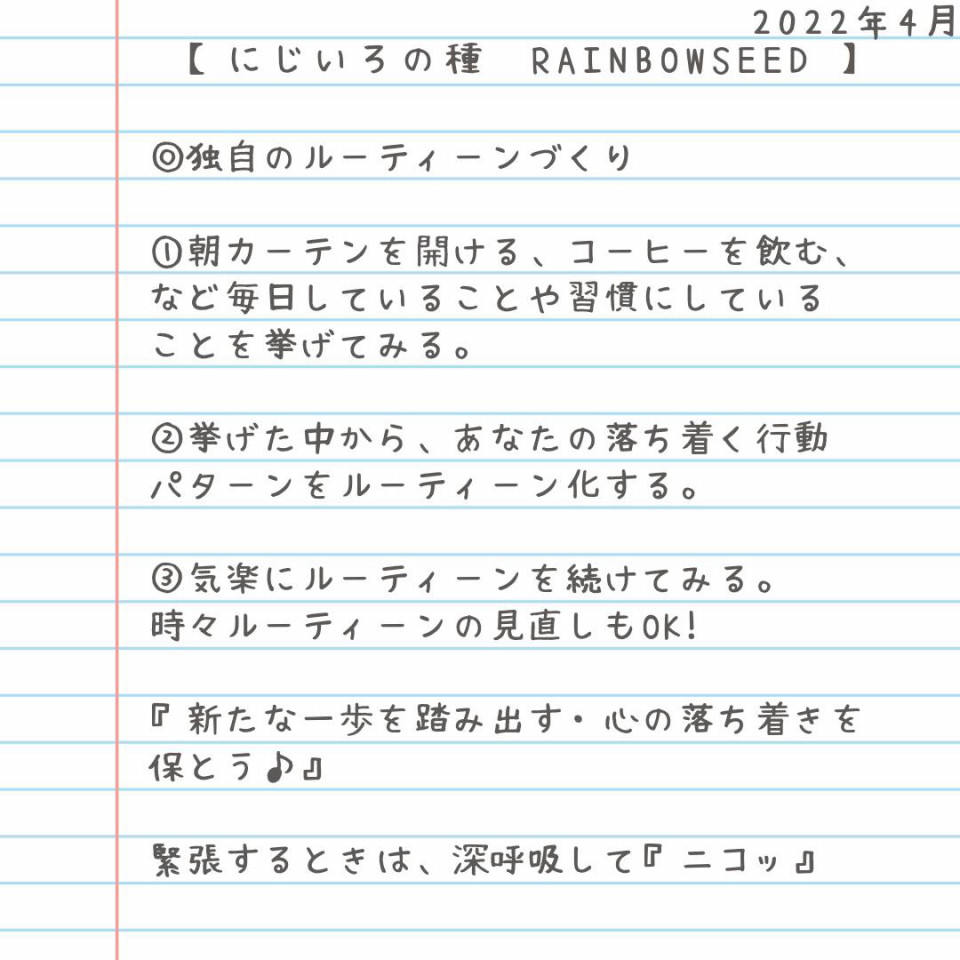 2022年4月
【 にじいろの種　RAINBOWSEED 】
◎独自のルーティーンづくり
①朝カーテンを開ける、コーヒーを飲む、
など毎日していることや習慣にしている
ことを挙げてみる。
②挙げた中から、あなたの落ち着く行動
パターンをルーティーン化する。
③気楽にルーティーンを続けてみる。
時々ルーティーンの見直しもOK!
『新たな一歩を踏み出す・心の落ち着きを
保とう♪』
緊張するときは、深呼吸して『ニコッ』